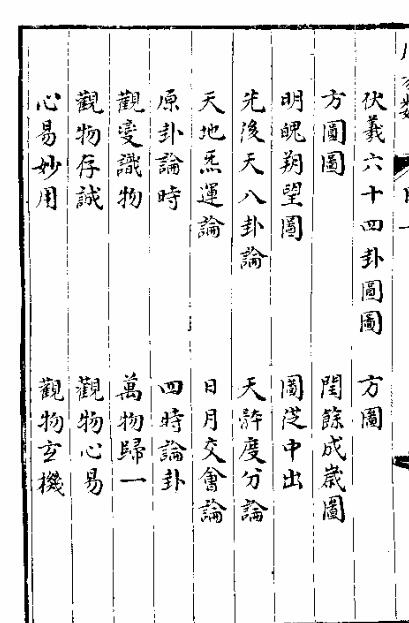 伏羲六十四卦圓圖　方圖
方圓圖　閏餘成歲圖
明魄朔望圖　圖從中出
先後天八卦論　天度分論
天地炁運論　日月交會論
原卦論時　四時論卦
觀變識物　萬物歸一
觀物存誠　觀物心易
心易妙用　觀物玄機